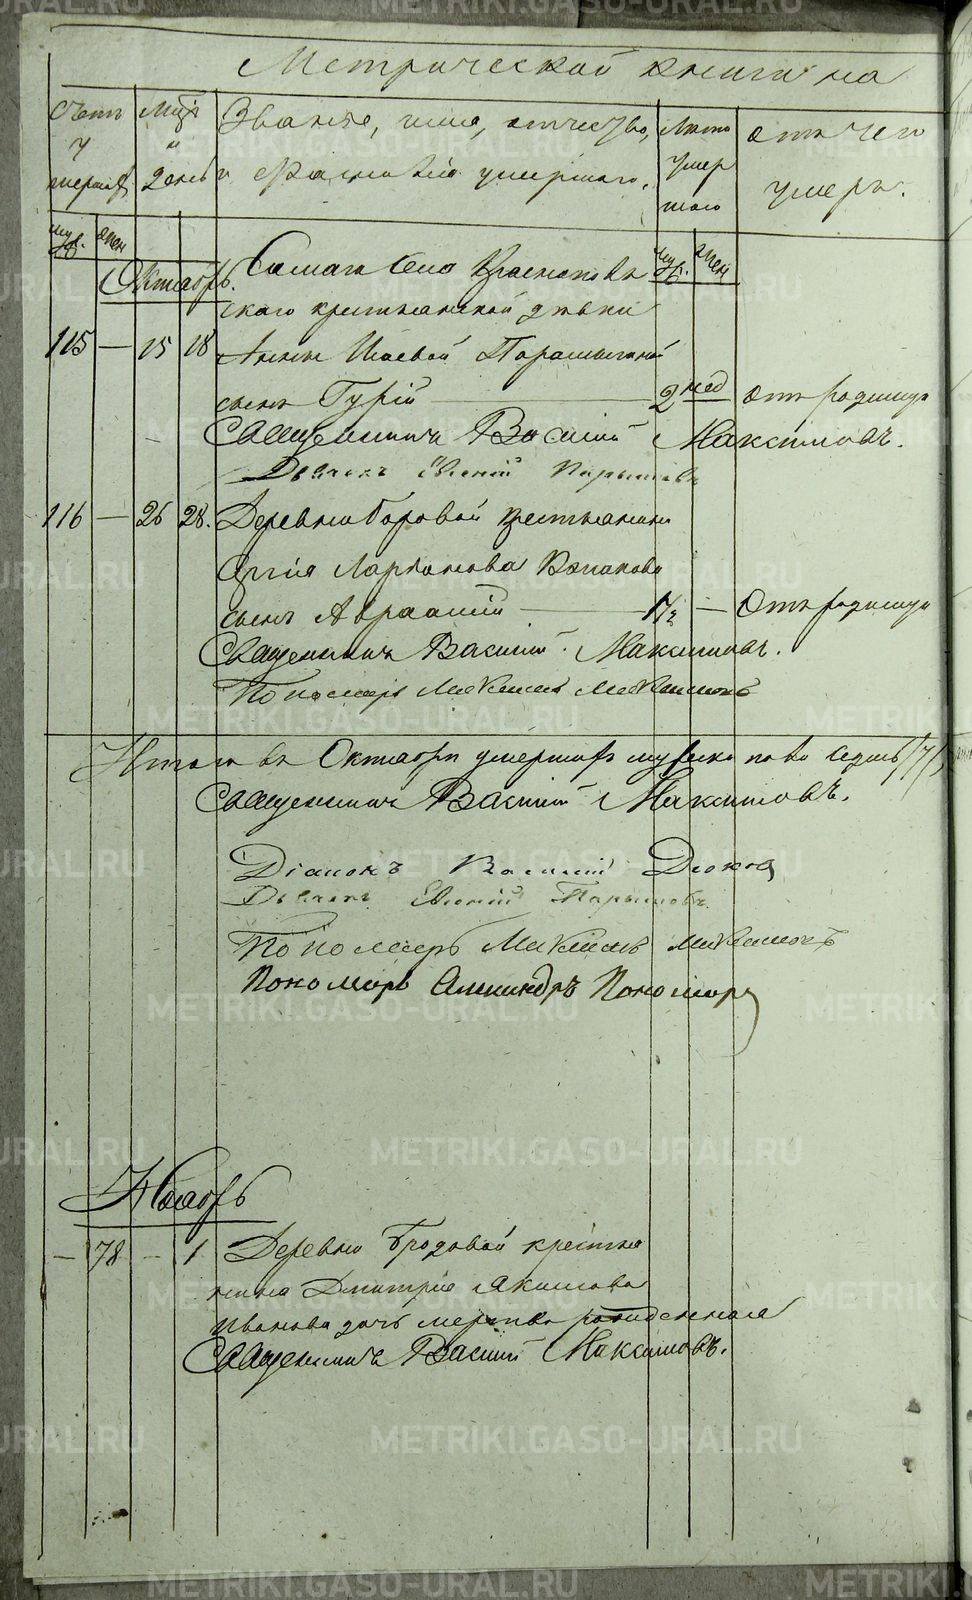 Метрической книги на
Счетъ умершихъ
Мцъ и день
Званiе, имя, отчество, и фамилiя умершаго.
Лета умершаго
отъ чего умеръ.
муж. жен.
муж. жен.
Октябрь.
Самаго села
скаго крестьянской девки
115 — 15 18 Анны Исаевой
сынъ Гурiй — 2 нед отъ родимца
Священникъ Василiй Максимовъ.
Дьячекъ Евгенiй
116 — 26 28. Деревни Боровой крестьянина
Сергiя Ларiонова
сынъ Авраамiй — 1/2 — Отъ родимца
Священникъ Василiй Максимовъ.
Пономарь
Итого въ Октябре умершихъ мужеска пола семь /7/
Священникъ Василiй Максимовъ.
Дiаконъ Василiй
Дьячекъ Евгенiй
Пономарь
Пономарь Александръ Пономаре
Ноябрь
— 78 — 1 Деревни Бродовой крестья
нина Дмитрiя Якимова
Иванова дочь мертво рожденная
Священникъ Василiй Максимовъ.
METRIKI.GASO-URAL.RU